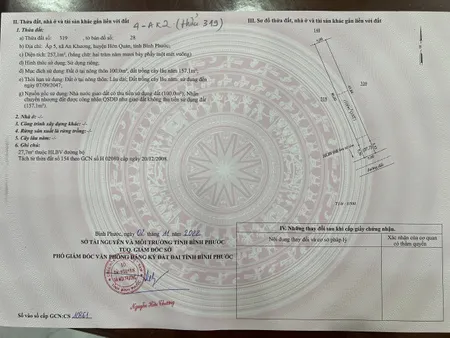 II. Thửa đất, nhà ở và tài sản khác gắn liền với đất
4-AK2 (Hữu 319)
1. Thửa đất:
a) Thửa đất số: 319 , tờ bản đồ số: 28
b) Địa chỉ: Ấp 5, xã An Khương, huyện Hớn Quản, tỉnh Bình Phước,
c) Diện tích: 257,1m², (bằng chữ: hai trăm năm mươi bảy phẩy một mét vuông)
d) Hình thức sử dụng: Sử dụng riêng;
đ) Mục đích sử dụng: Đất ở tại nông thôn 100,0m²; đất trồng cây lâu năm 157,1m²
e) Thời hạn sử dụng: Đất ở tại nông thôn: Lâu dài; Đất trồng cây lâu năm: sử dụng đến
07/09/2047;
g) Nguồn gốc sử dụng: Nhà nước giao đất có thu tiền sử dụng đất (100,0m²); Nhận
chuyển nhượng đất được công nhận QSDĐ như giao đất không thu tiền sử dụng đất
(157,1m²).
2. Nhà ở: -/-
3. Công trình xây dựng khác: -/-
4. Rừng sản xuất là rừng trồng: -/-
5. Cây lâu năm: -/-
6. Ghi chú:
27,7m² thuộc HLBV đường bộ
Tách từ thửa đất số 154 theo GCN số H 02085 cấp ngày 20/02/2008.
Bình Phước, ngày 02 tháng 11 năm 2022
SỞ TÀI NGUYÊN VÀ MÔI TRƯỜNG TỈNH BÌNH PHƯỚC
TUQ. GIÁM ĐỐC SỞ
PHÓ GIÁM ĐỐC VĂN PHÒNG ĐĂNG KÝ ĐẤT ĐAI TỈNH BÌNH PHƯỚC
Nguyễn Hữu Chương
Số vào sổ cấp GCN:CS
III. Sơ đồ thửa đất, nhà ở và tài sản khác gắn liền với đất
318
320
319
Đường đất
IV. Những thay đổi sau khi cấp giấy chứng nhận
Nội dung thay đổi và cơ sở pháp lý
Xác nhận của cơ quan
có thẩm quyền